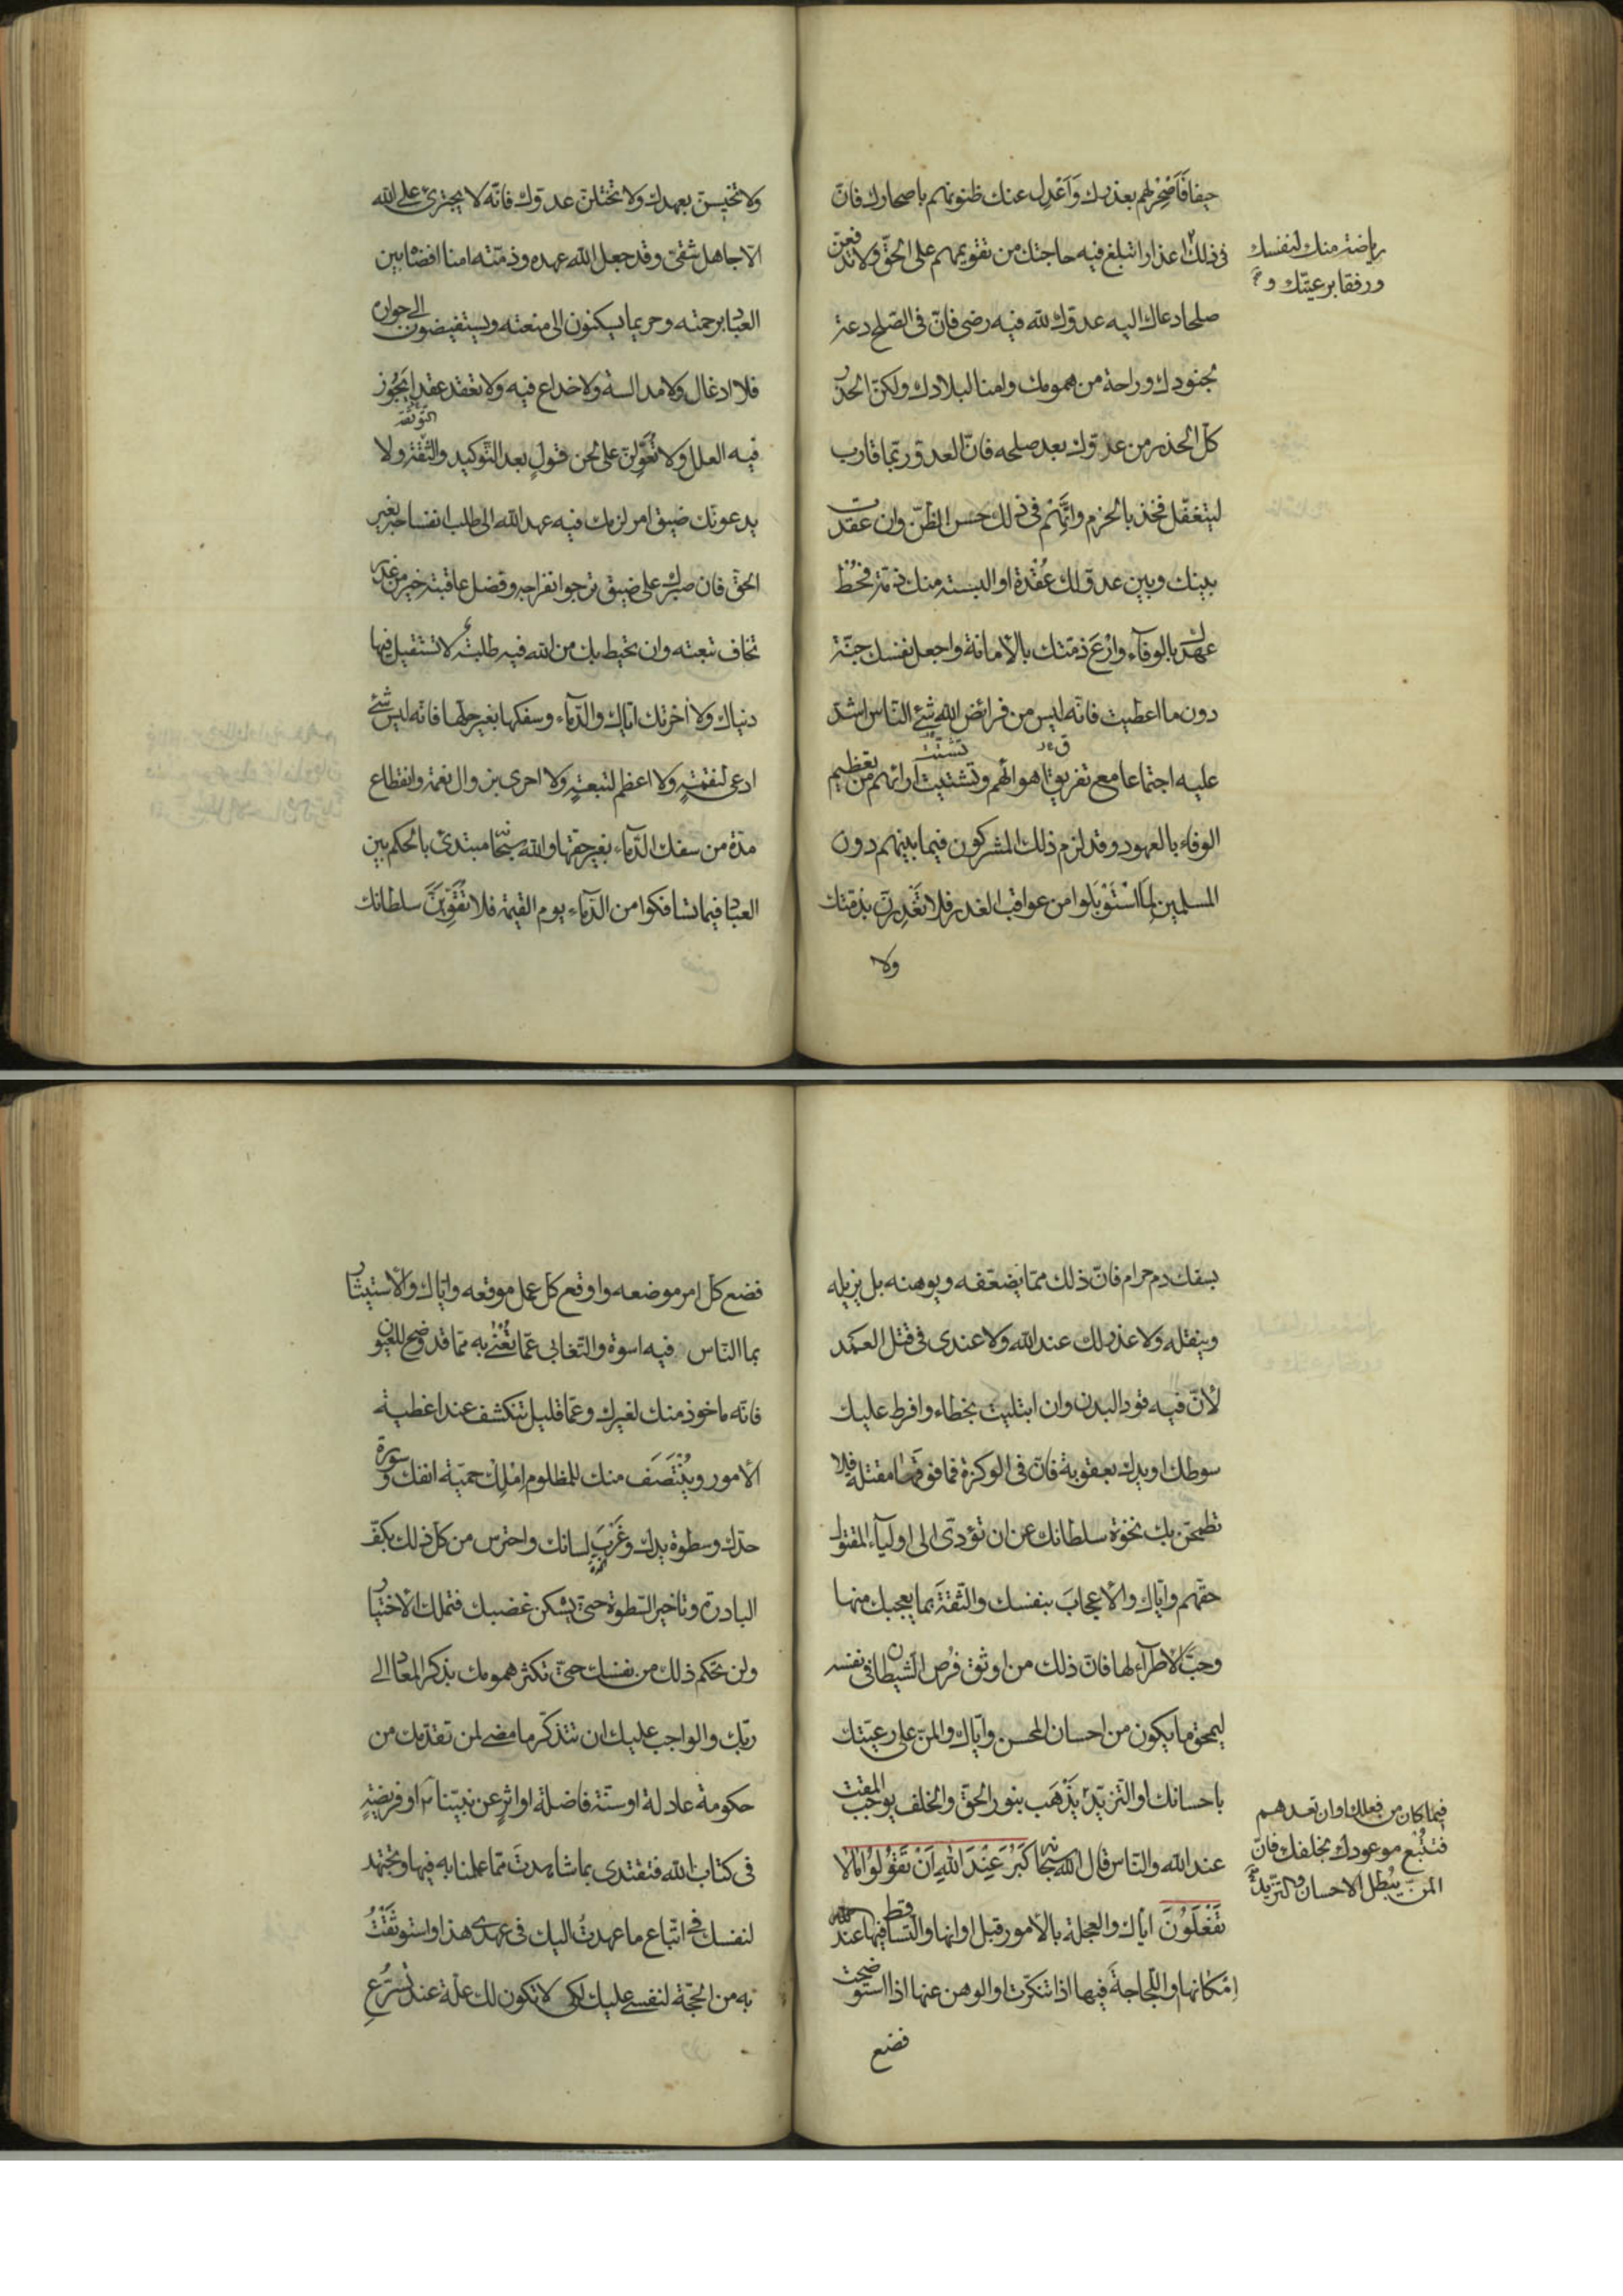 حيفا فَاَصْحِرْ لهم بعذرك وَاَعْدِل عنك ظنونهم باصحارك فانّ
فى ذلك اعذارا تبلغ فيه حاجتك من تقويمهم على الحقّ ولا تدفعنّ
رياضة منك لنفسك
ورفقا برعيّتك و
صلحا دعاك اليه عدوّك لله فيه رضى فانّ فى الصّلح دعة
لجنودك وراحة من همومك وامنا لبلادك ولكن الحذر
كلّ الحذر من عدوّك بعد صلحه فانّ العدوّ ربّما قارب
ليتغفّل فخذ بالحزم واتَّهِم فى ذلك حسن الظنّ وان عقدت
بينك وبين عدوّ لك عُقْدة او البسته منك ذمّة فحُطْ
عهدك بالوفآء وارْعَ ذمّتك بالأمانة واجعل نفسك جنّة
دون ما اعطيت فانّه ليس من فرائض الله شئ النّاس اشدّ
تشتّت
عليه اجتماعا مع تفريق اهوائهم وتشتيت آرائهم من تعظيم
الوفاء بالعهود وقد لزم ذلك المشركون فيما بينهم دون
المسلمين لِمَا اسْتَوْبَلوا من عواقب الغدر فلا تَغْدِرنّ بذمّتك
ولا
ولا تخيسنّ بعهدك ولا تختلنّ عدوّك فانّه لا يجترئ على الله
الّا جاهل شقىّ وقد جعل الله عهده وذمّته امنا افضاه بين
العباد برحمته وحريما يسكنون الى منعته ويستفيضون الى جواره
فلا ادغال ولا مدالسة ولا خداع فيه ولا تعقد عقدا يَجُوز
التّوثقة
فيه العلل ولا تُعَوِّلنّ على لحن قولٍ بعد التّوكيد والثّقة ولا
يدعونّك ضيق امر لزمك فيه عهد الله الى طلب انفساخه بغير
الحقّ فان صبرك على ضيق ترجوا انفراجه وفضل عاقبته خير من غدر
تخاف تبعته وان تحيط بك من الله فيه طلبة لا تستقيل فيها
دنياك ولا اخرتك ايّاك والدّماء وسفكها بغير حلّها فانّه ليس شئ
ادعى لنقمةٍ ولا اعظم لتبعةٍ ولا احرى بزوال نعمة وانقطاع
مدّة من سفك الدّماء بغير حقّها والله سبحانه مبتدئ بالحكم بين
العباد فيما تسافكوا من الدّماء يوم القيمة فلا تُقَوِّيَنَّ سلطانك
بسفك دم حرام فانّ ذلك ممّا يضعّفه ويوهنه بل يزيله
وينقله ولا عذر لك عند الله ولا عندى فى قتل العمد
لأنّ فيه قود البدن وان ابتليت بخطاء وافرط عليك
سوطك او يدك بعقوبة فانّ فى الوكزة فما فوقها مقتلة فلا
تطمحنّ بك نخوة سلطانك عن ان تؤدّى الى اوليآء المقتول
حقّهم وايّاك والاعجابَ بنفسك والثّقةَ بما يعجبك منها
وحبّ الاطرآء لها فانّ ذلك من اوثق فُرص الشيطان فى نفسه
ليمحق ما يكون من احسان المحسن وايّاك والمنّ على رعيّتك
باحسانك او التّزيّد يَذْهَب بنور الحقّ والخلف يوجب المقت
فيما كان من فعلك او ان تعدهم
فتتْبع موعودك بخلفك فانّ
المنّ يُبْطل الاحسان والتزيّد
عند الله والنّاس قال الله سبحانه كَبُرَ عِنْدَ اللهِ اَنْ تَقُولُوا مَالَا
تَفْعَلُوْنَ ايّاك والعجلة بالأمور قبل اوانها والتّساقط فيها عند
اِمْكانها واللّجاجةَ فيها اذا تنكّرت او الوهن عنها اذا استوضحت
فضع
فضع كلّ امر موضعه واوقع كلّ عمل موقعه وايّاك والأستيثار
بما النّاس فيه اسوة والتّغابى عمّا تُعْنٰى به ممّا قد وضح للعيون
فانّه ماخوذ منك لغيرك وعمّا قليل تنكشف عند اغطية
الأمور ويُنْتَصَف منك للمظلوم اِمْلِكْ حميّة انفك وسورة
حدّك وسطوة يدك وغَرْبَ لسانك واحترس من كلّ ذلك بكفّ
البادرة وتاخير السّطوة حتّى يسكن غضبك فتملك الاختيار
ولن تحكم ذلك من نفسك حتّى تكثر همومك بذكر المعاد الى
ربّك والواجب عليك ان تتذكّر ما مضى لمن تقدّمك من
حكومة عادلة او سنّة فاضلة او اثرٍ عن نبيّنا او فريضةٍ
فى كتاب الله فتقتدى بما شاهدتَ ممّا عملنا به فيها وتجتهد
لنفسك فى اتّباع ما عهدتُ اليك فى عهدى هذا واستوثَقْتُ
به من الحجّة لنفسى عليك لكى لا تكون لك علّة عند تسرّعِ